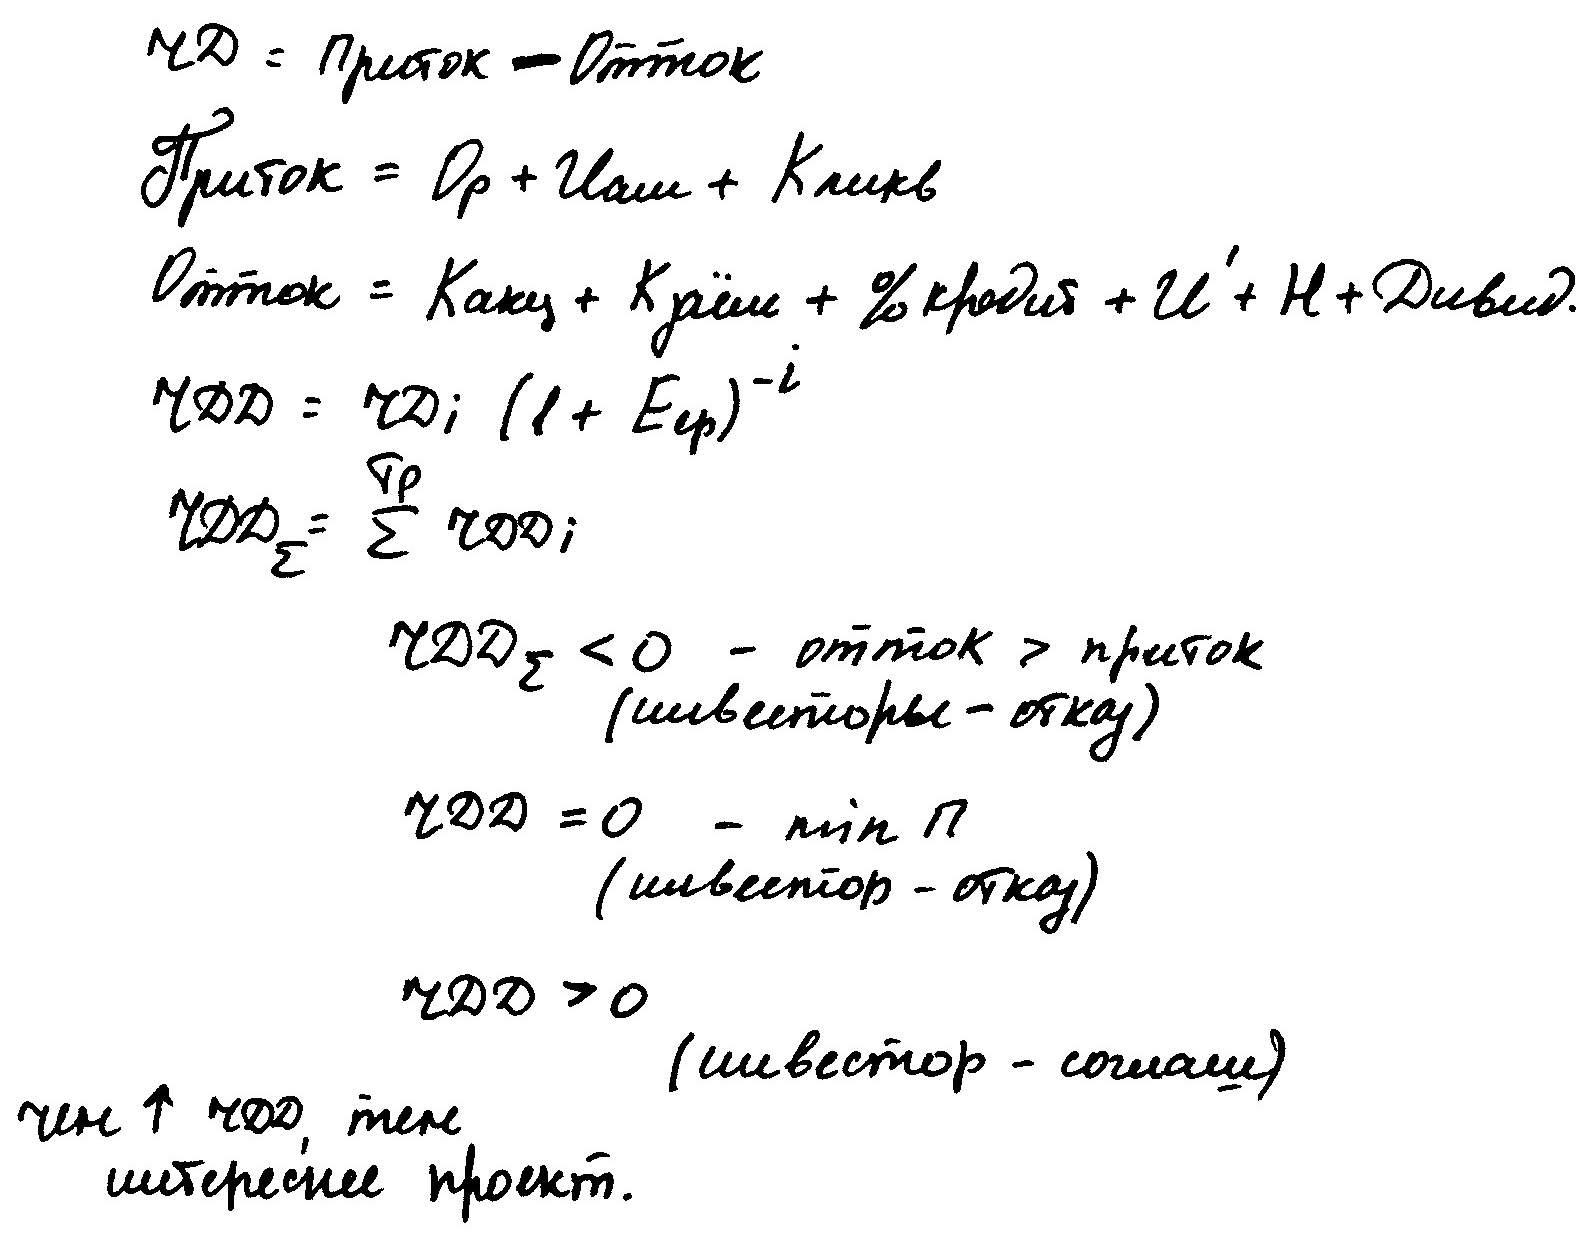 ЧД = Приток - Отток
Приток = Ор + Иам + Кликв
Отток = Какц + Кзаём + % кредит + И' + Н + Дивид.
ЧДД = ЧДi (1 + Eср)^-i
ЧДДΣ = Σ^Тр ЧДДi
ЧДДΣ < 0 - отток > приток
(инвесторы - отказ)
ЧДД = 0 - min П
(инвестор - отказ)
ЧДД > 0
(инвестор - соглаш)
чем ↑ ЧДД, тем
интереснее проект.